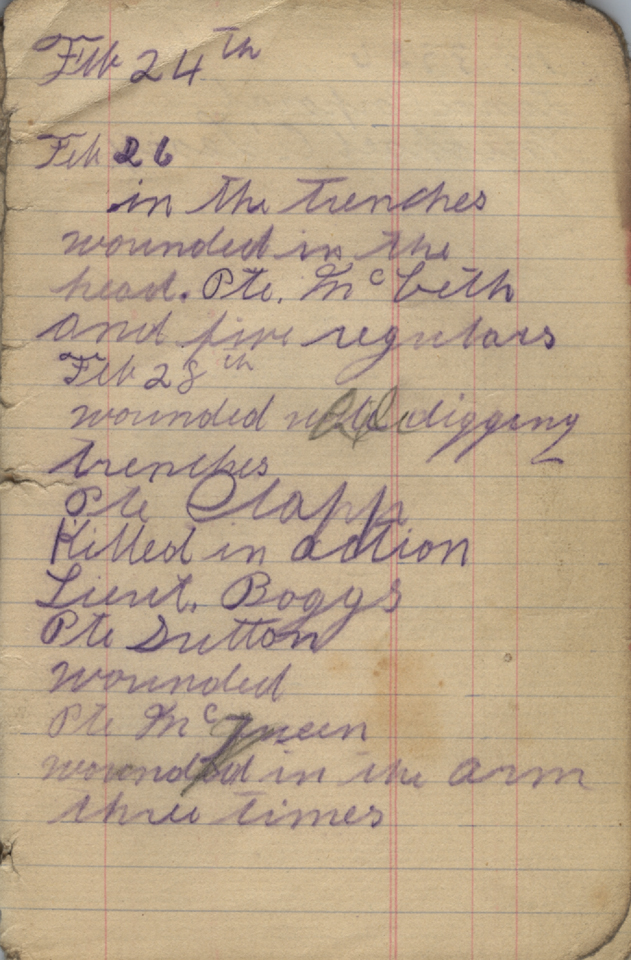 Feb 24th
Feb 26
in the trenches
wounded in the
head. Pte. Mc Beth
and five regulars
Feb 28th
wounded digging
trenches
Pte Clapp
Killed in action
Lieut. Boggs
Pte Sutton
wounded
Pte McQueen
wounded in the arm
three times